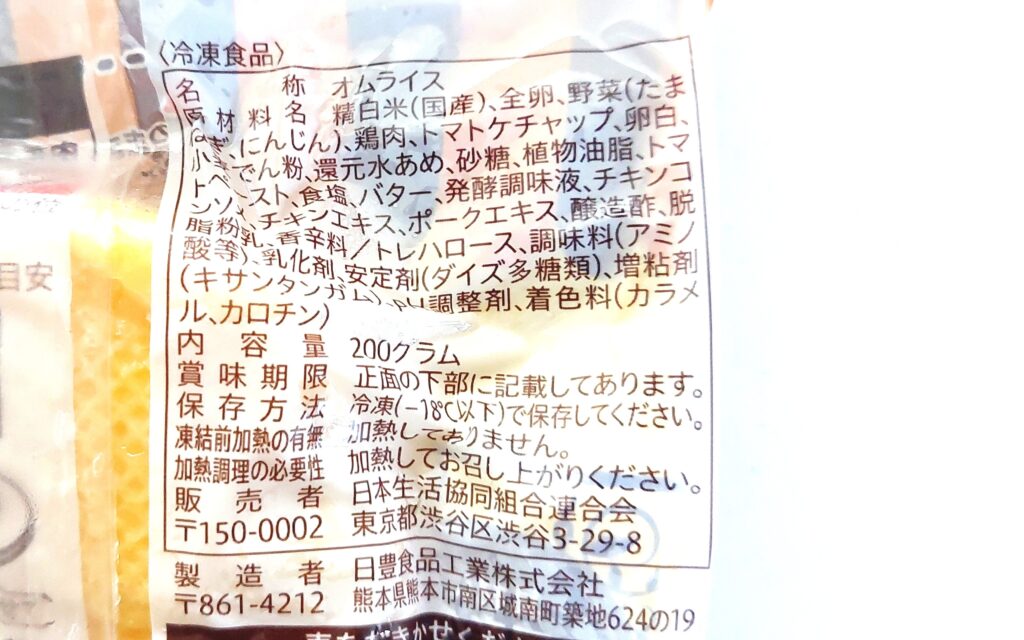 〈冷凍食品〉
名称 オムライス
原材料名 精白米(国産)、全卵、野菜(たま
ねぎ、にんじん)、鶏肉、トマトケチャップ、卵白、
小麦でん粉、還元水あめ、砂糖、植物油脂、トマ
トペースト、食塩、バター、発酵調味液、チキンコ
ンソメ、チキンエキス、ポークエキス、醸造酢、脱
脂粉乳、香辛料/トレハロース、調味料(アミノ
酸等)、乳化剤、安定剤(ダイズ多糖類)、増粘剤
(キサンタンガム)、pH調整剤、着色料(カラメ
ル、カロチン)
内容量 200グラム
賞味期限 正面の下部に記載してあります。
保存方法 冷凍(−18℃以下)で保存してください。
凍結前加熱の有無 加熱してありません。
加熱調理の必要性 加熱してお召し上がりください。
販売者 日本生活協同組合連合会
〒150-0002 東京都渋谷区渋谷3-29-8
製造者 日豊食品工業株式会社
〒861-4212 熊本県熊本市南区城南町築地624の19
目安